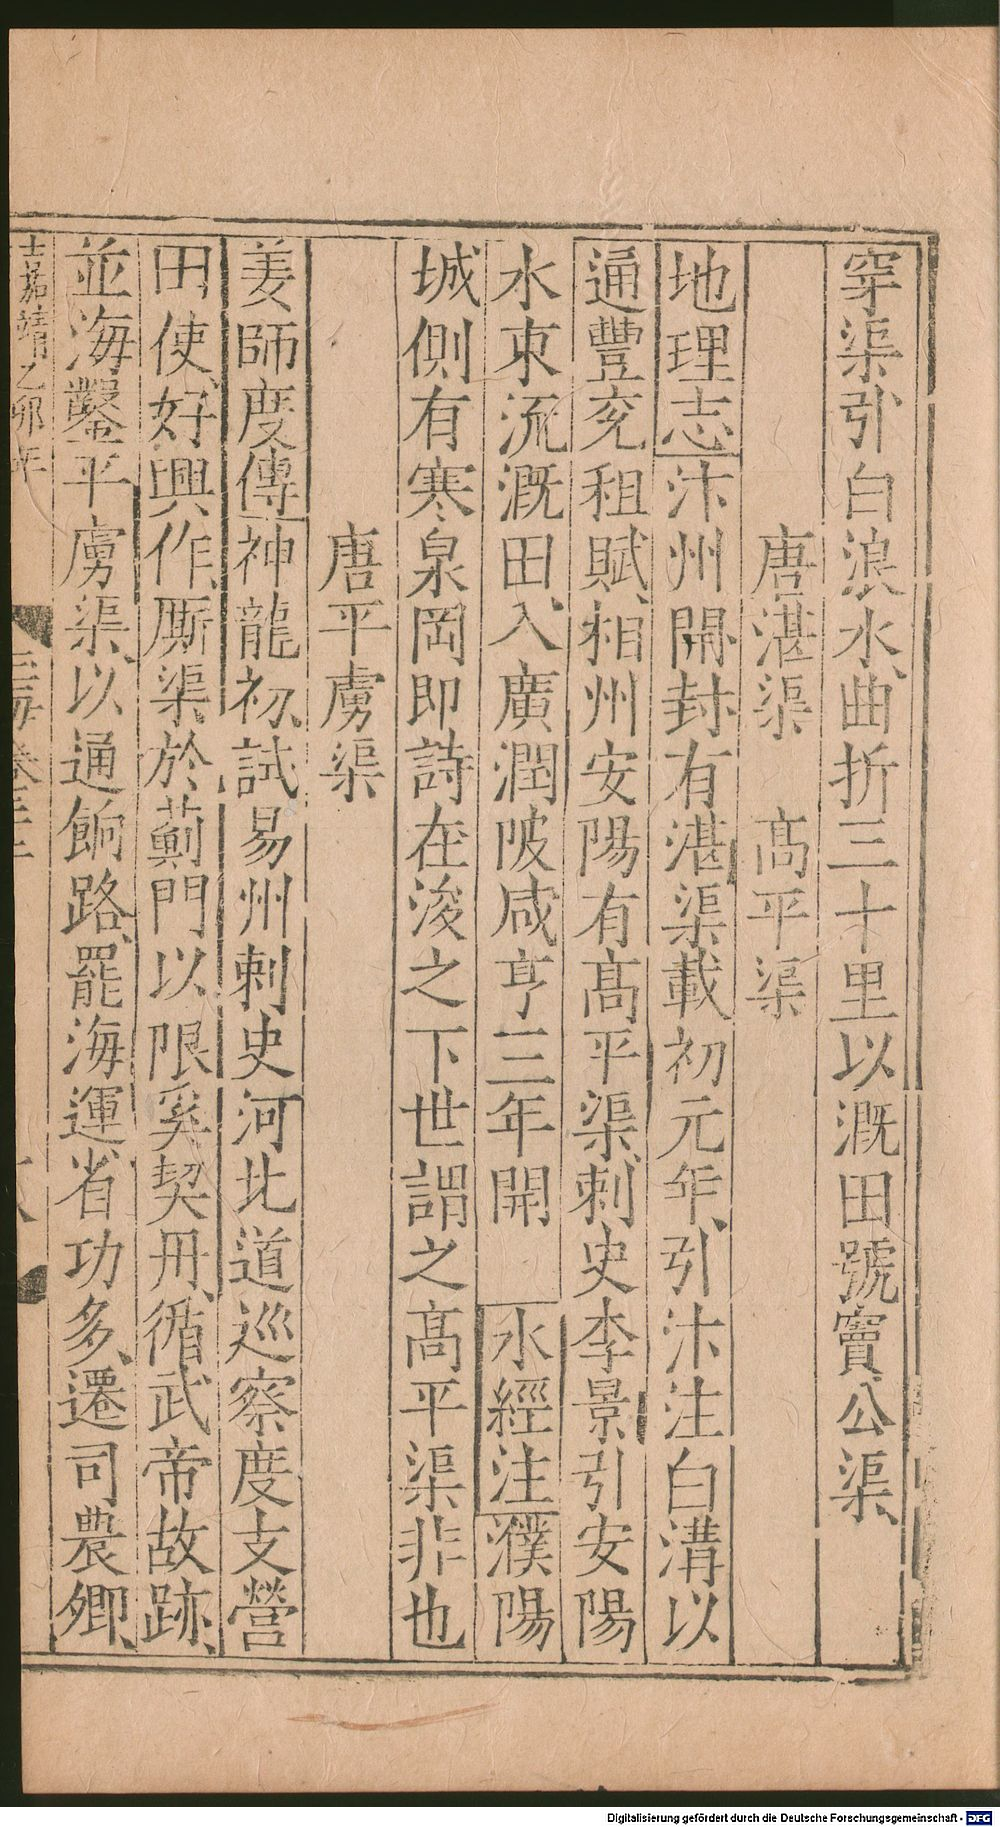 穿渠引白浪水曲折三十里以溉田號竇公渠
唐湛渠 髙平渠
地理志汴州開封有湛渠載初元年引汴注白溝以
通豐兖租賦相州安陽有髙平渠刺史李景引安陽
水東流溉田入廣潤陂咸亨三年開 水經注濮陽
城側有寒泉岡即詩在浚之下世謂之髙平渠非也
唐平虜渠
姜師度傳神龍初試易州刺史河北道巡察度支營
田使好興作厮渠於薊門以限奚契丹循武帝故跡
並海鑿平虜渠以通餉路罷海運省功多遷司農卿
嘉靖乙卯年
玉海卷二十二
Digitalisierung gefördert durch die Deutsche Forschungsgemeinschaft - DFG